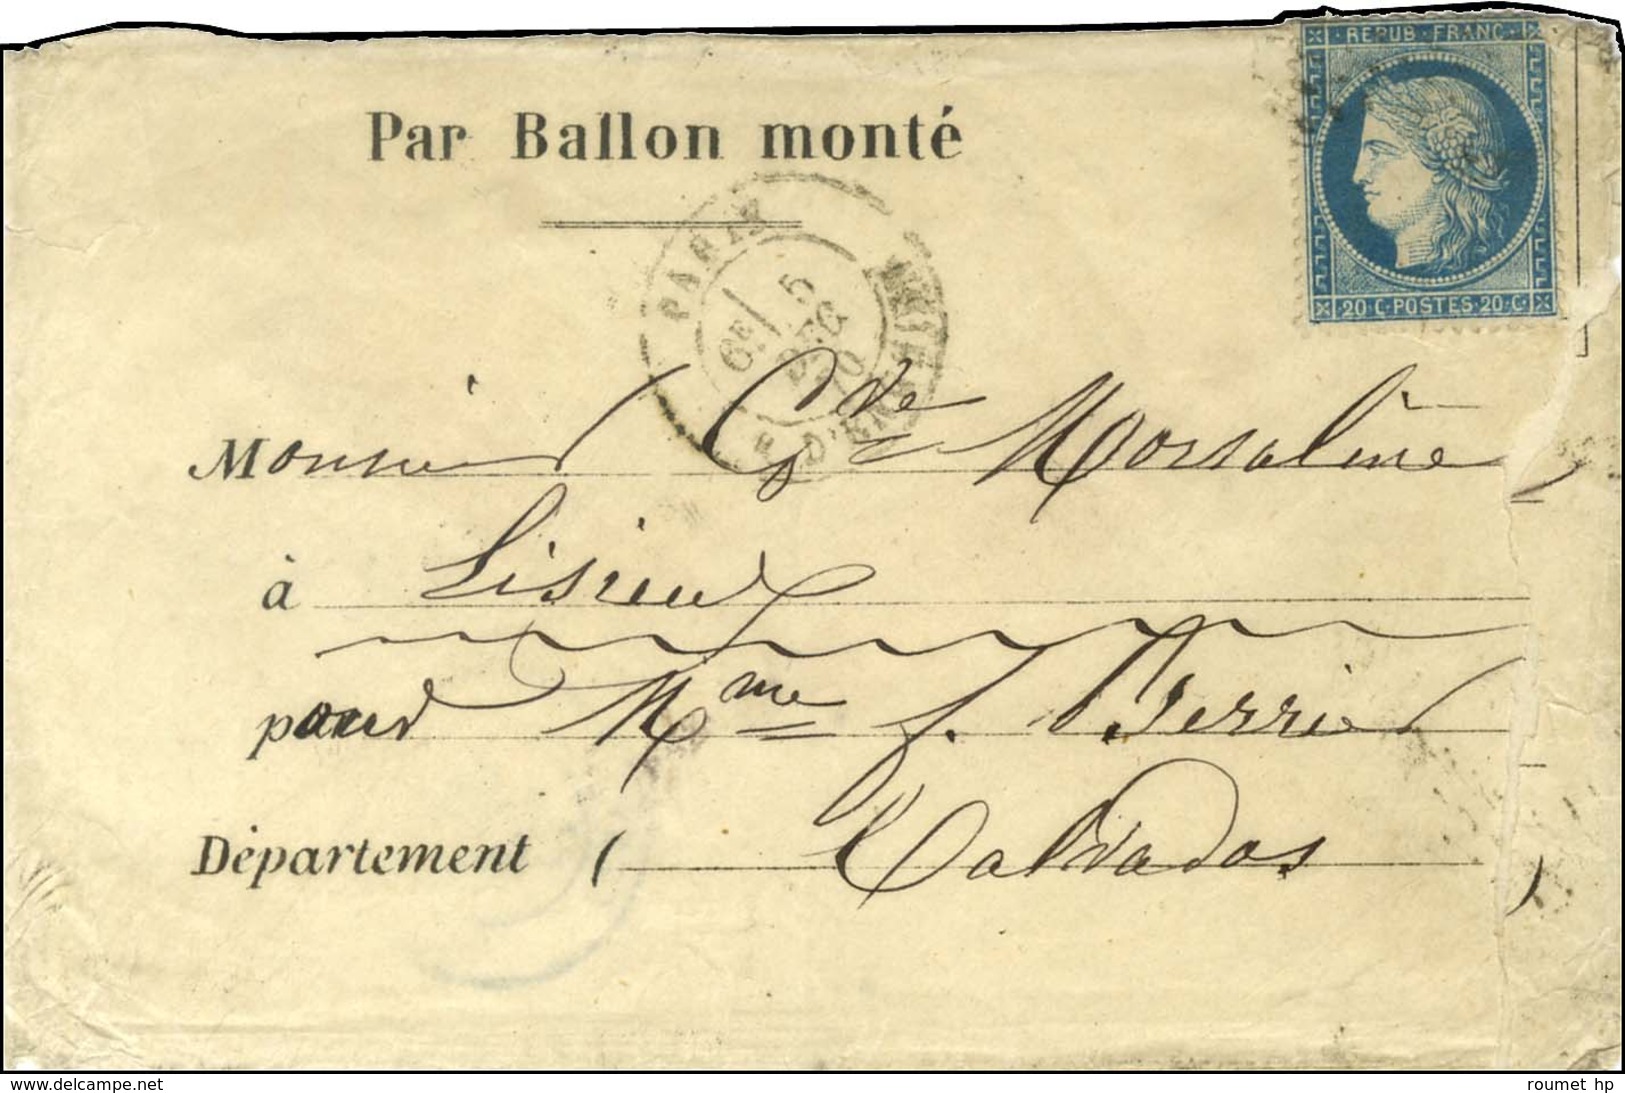 REPUB · FRANC ·
Par Ballon monté
20 C · POSTES · 20 · C ·
PARIS
6E 5
DEC
70
R. D'ENGHIEN
Monsieur Gve Morsaline
à Lisieux
pour Mme f. Perrier
Département ( Calvados )
www.delcampe.net
roumet hp